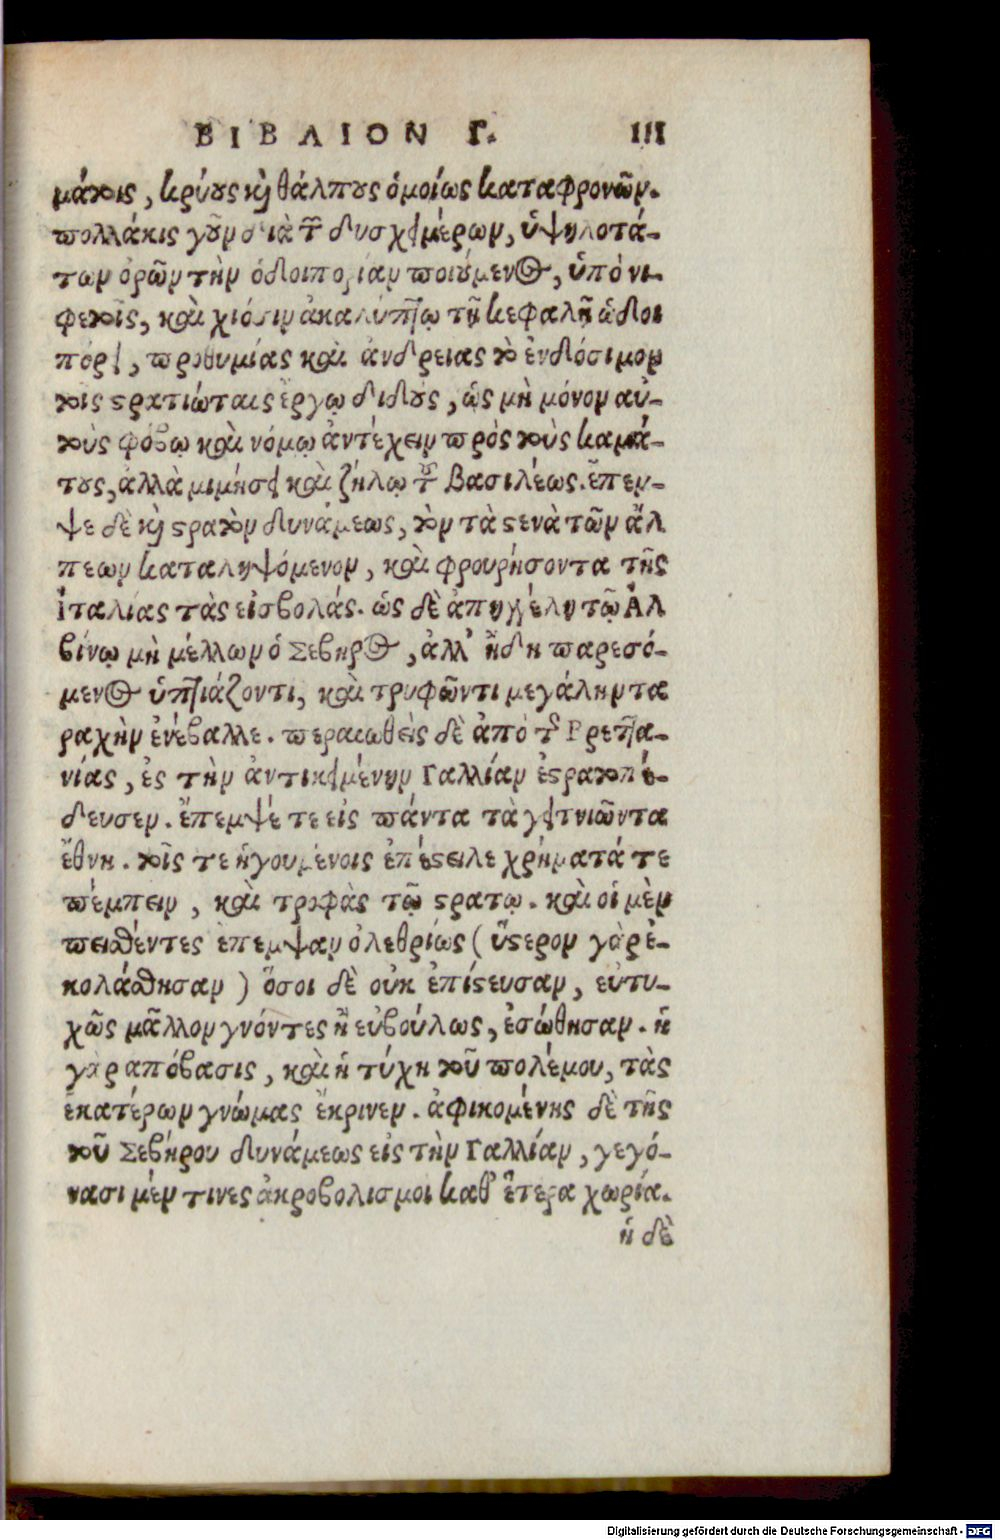 ΒΙΒΛΙΟΝ Γ. III
μάτοις, κρύους κὶ θάλπους ὁμοίως καταφρονῶν.
πολλάκις γοῦν διὰ τῶν δυσχειμέρων, ὑψηλοτά-
των ὀρῶν τὴν ὁδοιπορίαν ποιούμενος, ὑπὸ νι-
φετοῖς, καὶ χιόσιν ἀκαλύπτῳ τῇ κεφαλῇ ὡδοι
πόρει, προθυμίας καὶ ἀνδρειας τὸ ἐνδόσιμον
τοῖς στρατιώταις ἔργῳ διδοὺς, ὡς μὴ μόνον αὐ-
τοὺς φόβῳ καὶ νόμῳ ἀντέχειν πρὸς τοὺς καμά-
τους, ἀλλὰ μιμήσει καὶ ζήλῳ τοῦ βασιλέως. ἔπεμ-
ψε δὲ κὶ στρατὸν δυνάμεως, τὸν τὰ στενὰ τῶν ἄλ
πεων καταληψόμενον, καὶ φρουρήσοντα τῆς
Ἰταλίας τὰς εἰσβολάς. ὡς δὲ ἀπηγγέλη τῷ Ἀλ
βίνῳ μὴ μέλλων ὁ Σεβηρος, ἀλλ' ἤδη παρεσό-
μενος ὑπτιάζοντι, καὶ τρυφῶντι μεγάλην τα
ραχὴν ἐνέβαλλε. περαιωθεὶς δὲ ἀπὸ τῆς Βρεττα-
νίας, ἐς τὴν ἀντικειμένην Γαλλίαν ἐστρατοπέ-
δευσεν. ἔπεμψέ τε εἰς πάντα τὰ γειτνιῶντα
ἔθνη. τοῖς τε ἡγουμένοις ἐπέστειλε χρήματά τε
πέμπειν, καὶ τροφὰς τῷ στρατῳ. καὶ οἱ μὲν
πεισθέντες ἔπεμψαν ὀλεθρίως (ὕστερον γὰρ ἐ-
κολάσθησαν) ὅσοι δὲ οὐκ ἐπίστευσαν, εὐτυ-
χῶς μᾶλλον γνόντες ἢ εὐβούλως, ἐσώθησαν. ἡ
γὰρ απόβασις, καὶ ἡ τύχη τοῦ πολέμου, τὰς
ἑκατέρων γνώμας ἔκρινεν. ἀφικομένης δὲ τῆς
τοῦ Σεβήρου δυνάμεως εἰς τὴν Γαλλίαν, γεγό-
νασι μέν τινες ἀκροβολισμοι καθ' ἕτερα χωρία.
ἡ δὲ
Digitalisierung gefördert durch die Deutsche Forschungsgemeinschaft - DFG